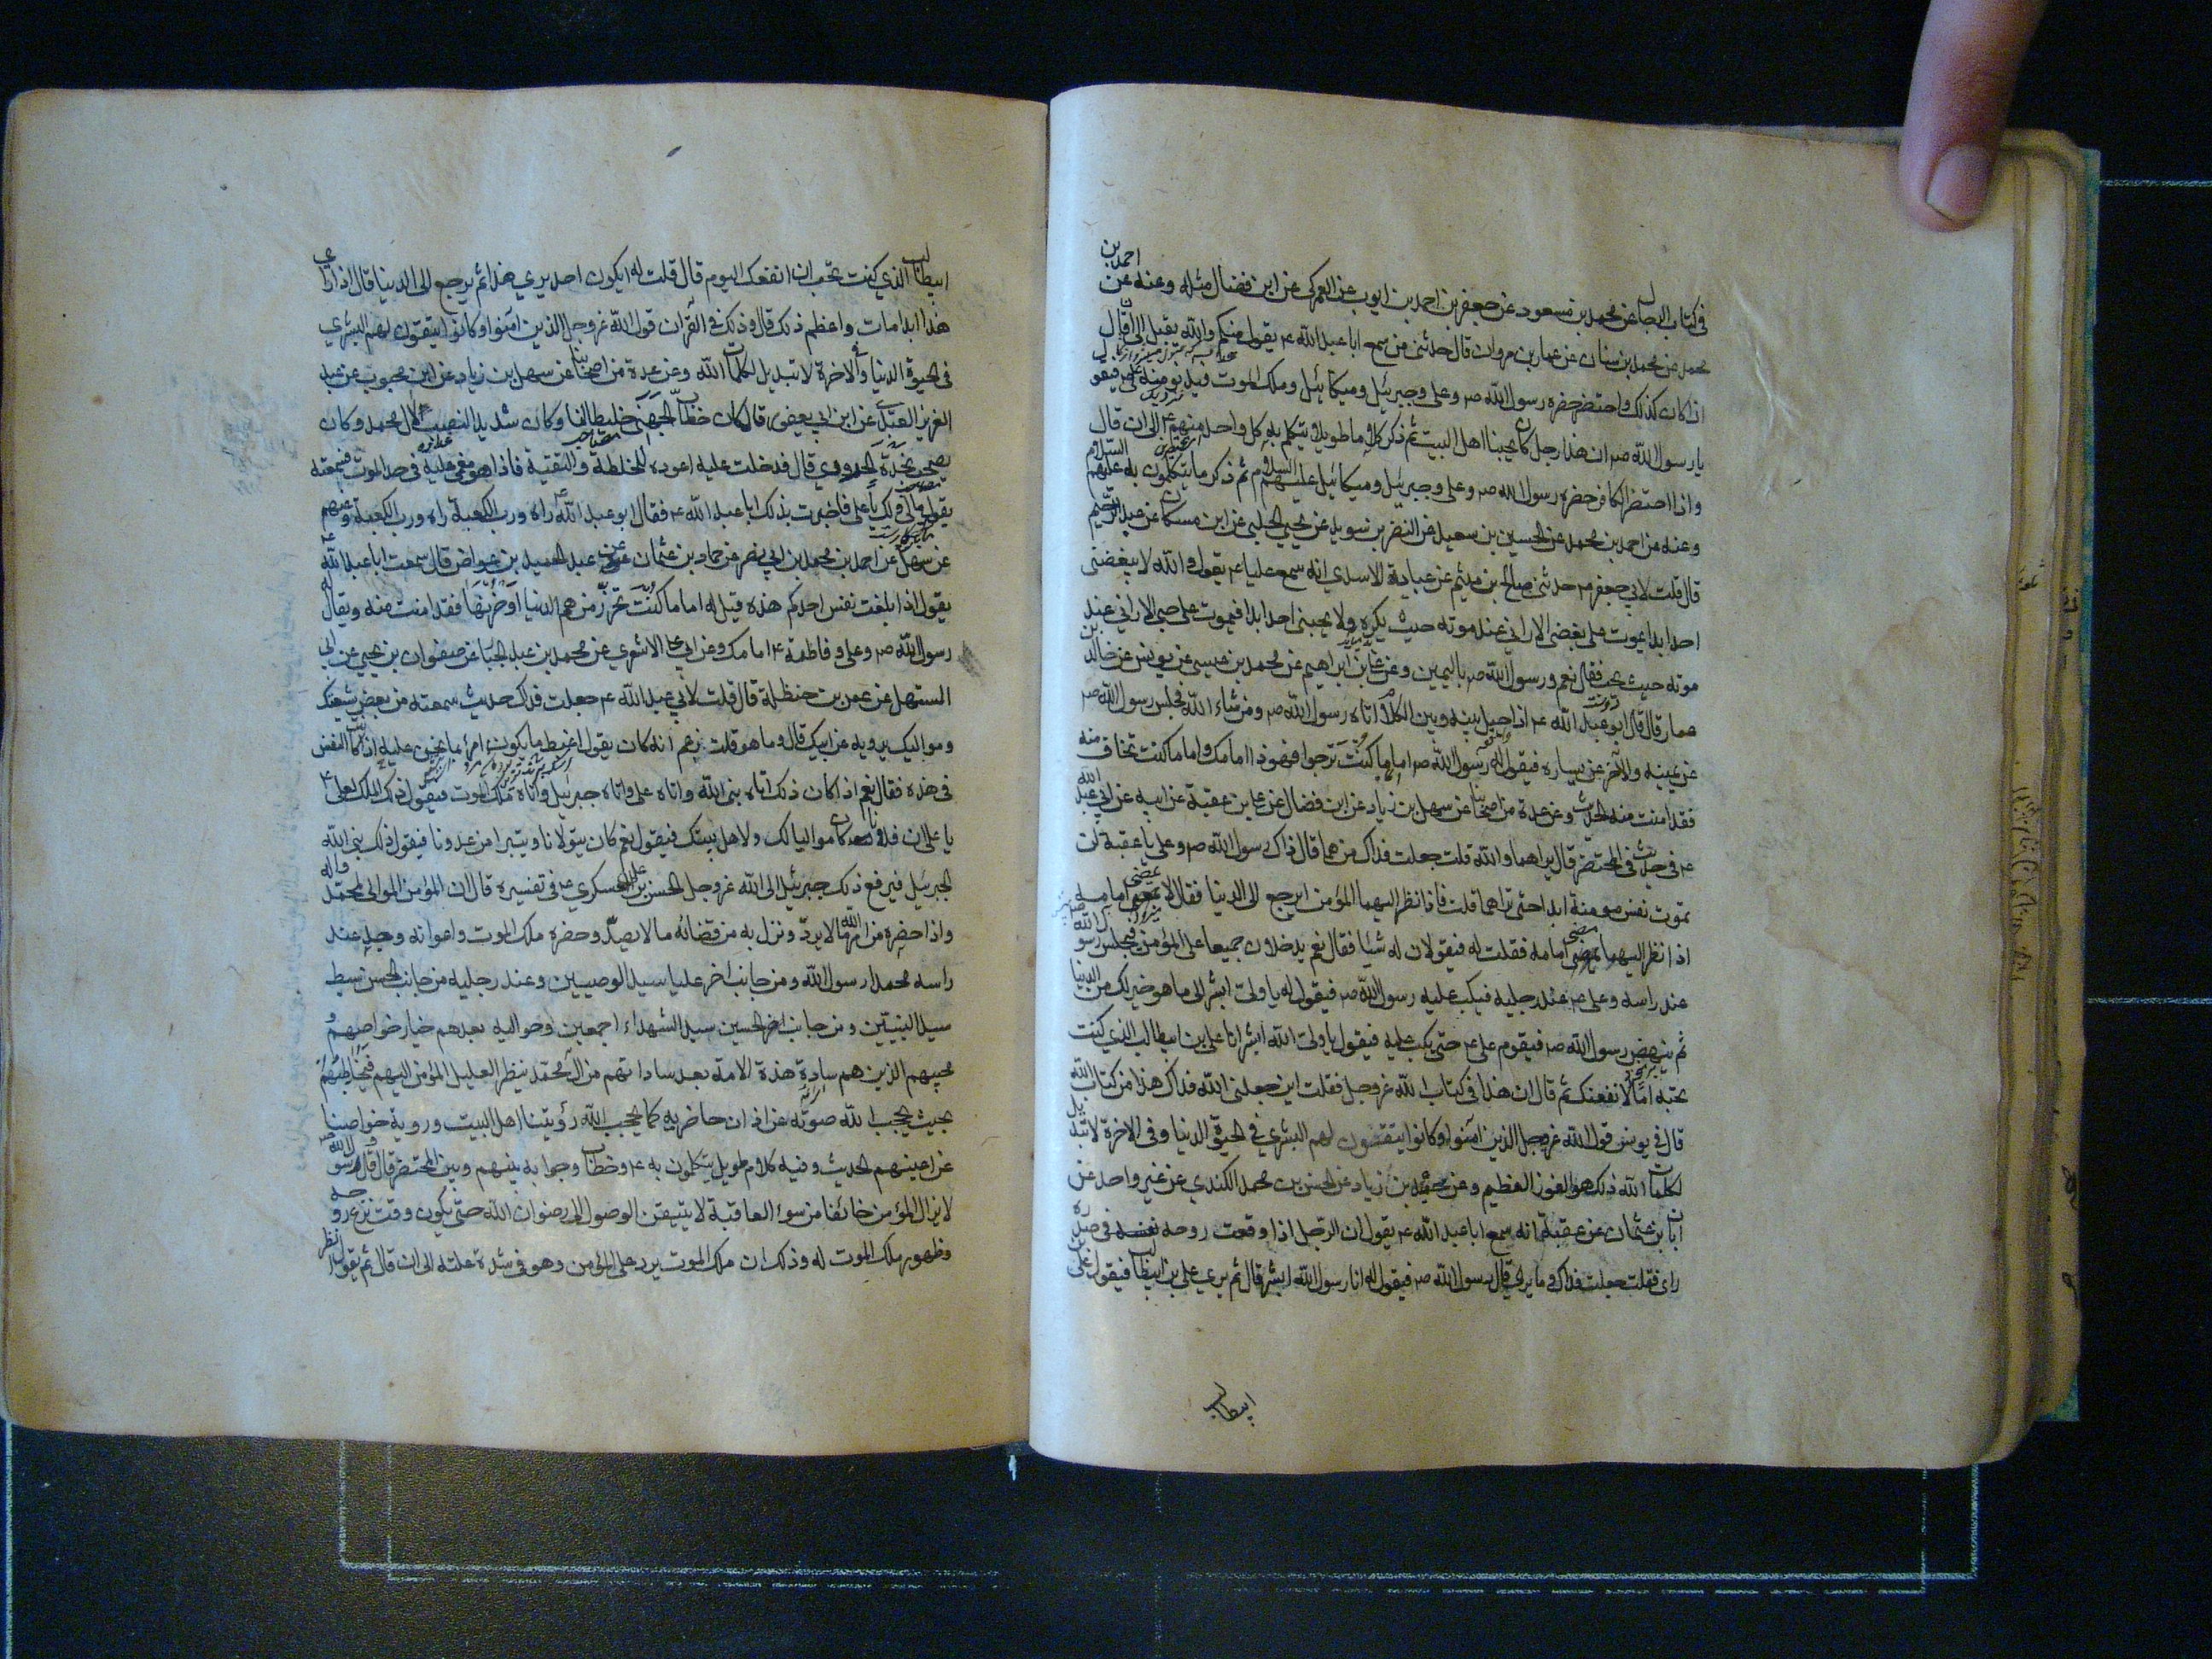 في كتاب الرجال عن محمد بن مسعود عن جعفر بن احمد بن ايوب عن العمركي عن ابن فضال مثله وعنه عن احمد بن
محمد عن محمد بن سنان عن عمار بن مروان قال حدثني من سمع ابا عبد الله ع يقول منكم والله يقبل الى ان قال
اذا كان كذلك واحتضر حضره رسول الله ص وعلى وجبرئيل وميكائيل وملك الموت فيدنو منه على ع فيقول
يا رسول الله ص ان هذا رجل كان يحبنا اهل البيت ثم ذكر كلاما طويلا يتكلم به كل واحد منهم ع الى ان قال
واذا احتضر الكافر حضره رسول الله ص وعلى وجبرئيل وميكائيل عليهم السلام ثم ذكر ما يتكلمون به عليهم السلام
وعنه عن احمد بن محمد عن الحسين بن سعيد عن النضر بن سويد عن يحيى الحلبي عن ابن مسكان عن عبد الرحيم
قال قلت لابي جعفر ع حدثني صالح بن ميثم عن عباية الاسدي انه سمع عليا ع يقول والله لا يبغضني
احد ابدا يموت على بغضي الا راني عند موته حيث يكره ولا يحبني احد ابدا فيموت على حبي الا راني عند
موته حيث يحب فقال نعم ورسول الله ص باليمين وعن علي بن ابراهيم عن محمد بن عيسى عن يونس عن خالد بن
عمار قال قال ابو عبد الله ع اذا حيل بينه وبين الكلام اتاه رسول الله ص ومن شاء الله فجلس رسول الله ص
عن يمينه والاخر عن يساره فيقول له رسول الله ص اما ما كنت ترجوا فهوذا امامك واما ما كنت تخاف منه
فقد امنت منه الحديث وعن عدة من اصحابنا عن سهل بن زياد عن ابن فضال عن علي بن عقبة عن ابيه عن ابي عبد الله
ع في حديث في المحتضر قال يراهما والله قلت جعلت فداك من هما قال ذاك رسول الله ص وعلى يا عقبة لن
تموت نفس مومنة ابدا حتى تراهما قلت فاذا نظر اليهما المؤمن ايرجع الى الدنيا فقال لا يمضي امامه
اذا نظر اليهما مضى امامه فقلت له فيقولان له شيئا فقال نعم يدخلان جميعا على المؤمن فيجلس رسول الله
عند راسه وعلى ع عند رجليه فيكب عليه رسول الله ص فيقول له يا ولى الله ابشر الى ما هو خير لك من الدنيا
ثم ينهض رسول الله ص فيقوم على ع حتى يكب عليه فيقول يا ولى الله ابشر انا على بن ابيطالب الذي كنت
تحبه اما لانفعنك ثم قال ان هذا في كتاب الله عز وجل فقلت اين جعلني الله فداك هذا من كتاب الله
قال في يونس قول الله عز وجل الذين امنوا وكانوا يتقون لهم البشرى في الحيوة الدنيا وفي الاخرة لا تبديل
لكلمات الله ذلك هو الفوز العظيم وعن حميد بن زياد عن الحسن بن محمد الكندي عن غير واحد عن
ابان بن عثمان عن عقبة انه سمع ابا عبد الله ع يقول ان الرجل اذا وقعت روحه في صدره
راى فقلت جعلت فداك وما يرى قال رسول الله ص فيقول له انا رسول الله ابشر قال ثم يرى على بن ابيطالب فيقول انا على بن
ابيطالب
ابيطالب الذي كنت تحب ان انفعك اليوم قال قلت له ايكون احد يرى هذا ثم يرجع الى الدنيا قال اذا راى
هذا ابدا مات واعظم ذلك قال وذلك في القران قول الله عز وجل الذين امنوا وكانوا يتقون لهم البشرى
في الحيوة الدنيا والاخرة لا تبديل لكلمات الله وعن عدة من اصحابنا عن سهل بن زياد عن ابن محبوب عن عبد
العزيز العبدي عن ابن ابي يعفور قال كان خطاب الجهني خليطا لنا وكان شديد النصب لال محمد وكان
يصحب نجدة الحروري قال فدخلت عليه اعوده للخلطة والتقية فاذا هو مغمى عليه في حد الموت فسمعته
يقول مالي ولك يا على فاخبرت بذلك ابا عبد الله ع فقال ابو عبد الله ع راه ورب الكعبة راه ورب الكعبة وعنهم
عن سهل عن احمد بن محمد بن ابي نصر عن حماد بن عثمان عن عبد الحميد بن عواض قال سمعت ابا عبد الله ع
يقول اذا بلغت نفس احدكم هذه قيل له اما ما كنت تحزن من هم الدنيا وحزنها فقد امنت منه ويقال له
رسول الله ص وعلى وفاطمة ع امامك وعن ابي على الاشعري عن محمد بن عبد الجبار عن صفوان بن يحيى عن ابي
المستهل عن محمد بن حنظلة قال قلت لابي عبد الله ع جعلت فداك حديث سمعته من بعض شيعتك
ومواليك يرويه عن ابيك قال وما هو قلت زعم انه كان يقول اغبط ما يكون امرؤ بما نحن عليه اذا كانت النفس
في هذه فقال نعم اذا كان ذلك اتاه نبي الله واتاه على واتاه جبرئيل واتاه ملك الموت فيقول ذلك الملك لعلى ع
يا على ان فلانا كان مواليا لك ولاهل بيتك فيقول نعم كان يتولانا ويتبرا من عدونا فيقول ذلك نبي الله
لجبرئيل فيرفع ذلك جبرئيل الى الله عز وجل الحسن بن على العسكري ع في تفسيره قال ان المؤمن الموالى لمحمد واله
واذا حضره من امر الله ما لا يرد ونزل به من قضائه ما لا يصد وحضره ملك الموت واعوانه وجد عند
راسه محمدا رسول الله ومن جانب اخر عليا سيد الوصيين وعند رجليه من جانب الحسن سبط
سيد النبيين ومن جانب اخر الحسين سيد الشهداء اجمعين وحواليه بعدهم خيار خواصهم و
محبيهم الذين هم سادة هذه الامة بعد ساداتهم من ال محمد ينظر العليل المؤمن اليهم فيخاطبهم
بحيث يحجب الله صوته عن اذان حاضريه كما يحجب الله رؤيتنا اهل البيت ورؤية خواصنا
عن اعينهم الحديث وفيه كلام طويل يتكلمون به ع وخطاب وجواب بينهم وبين المحتضر قال وقال رسول الله
لا يزال المؤمن خائفا من سوء العاقبة لا يتيقن الوصول الى رضوان الله حتى يكون وقت نزع روحه
وظهور ملك الموت له وذلك ان ملك الموت يرد على المؤمن وهو في شدة علته الى ان قال ثم يقول انظر